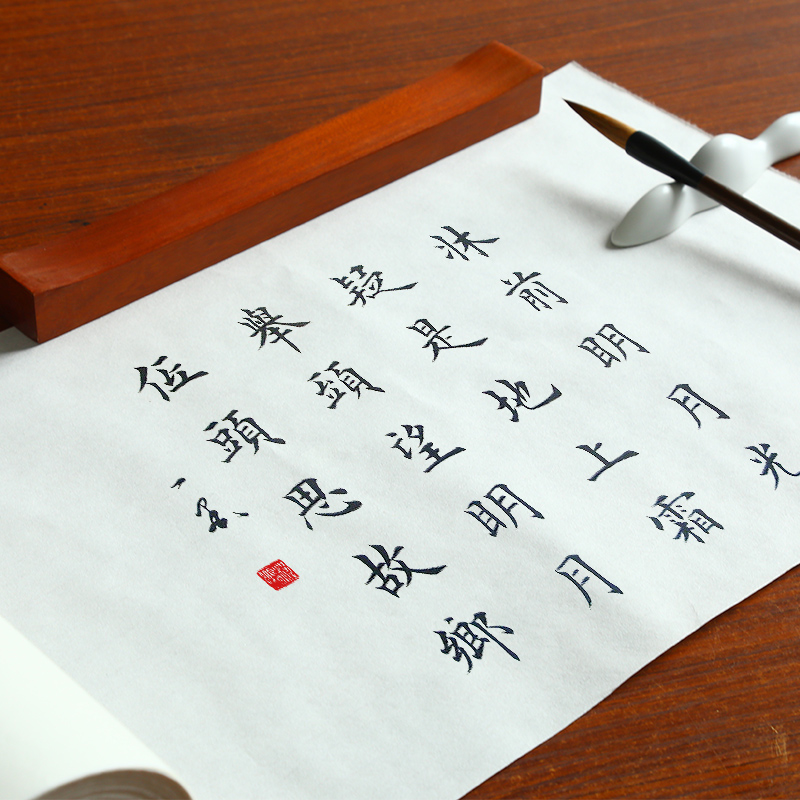 牀前明月光
疑是地上霜
舉頭望明月
低頭思故鄉